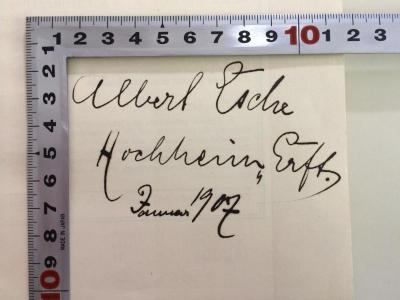 1 2 3 4 5 6 7 8 9 10 1 2 3
1 2 3 4 5 6 7 8 9 10
MADE IN JAPAN
Albert Esche
Hochheim „ Erft.
Januar 1907